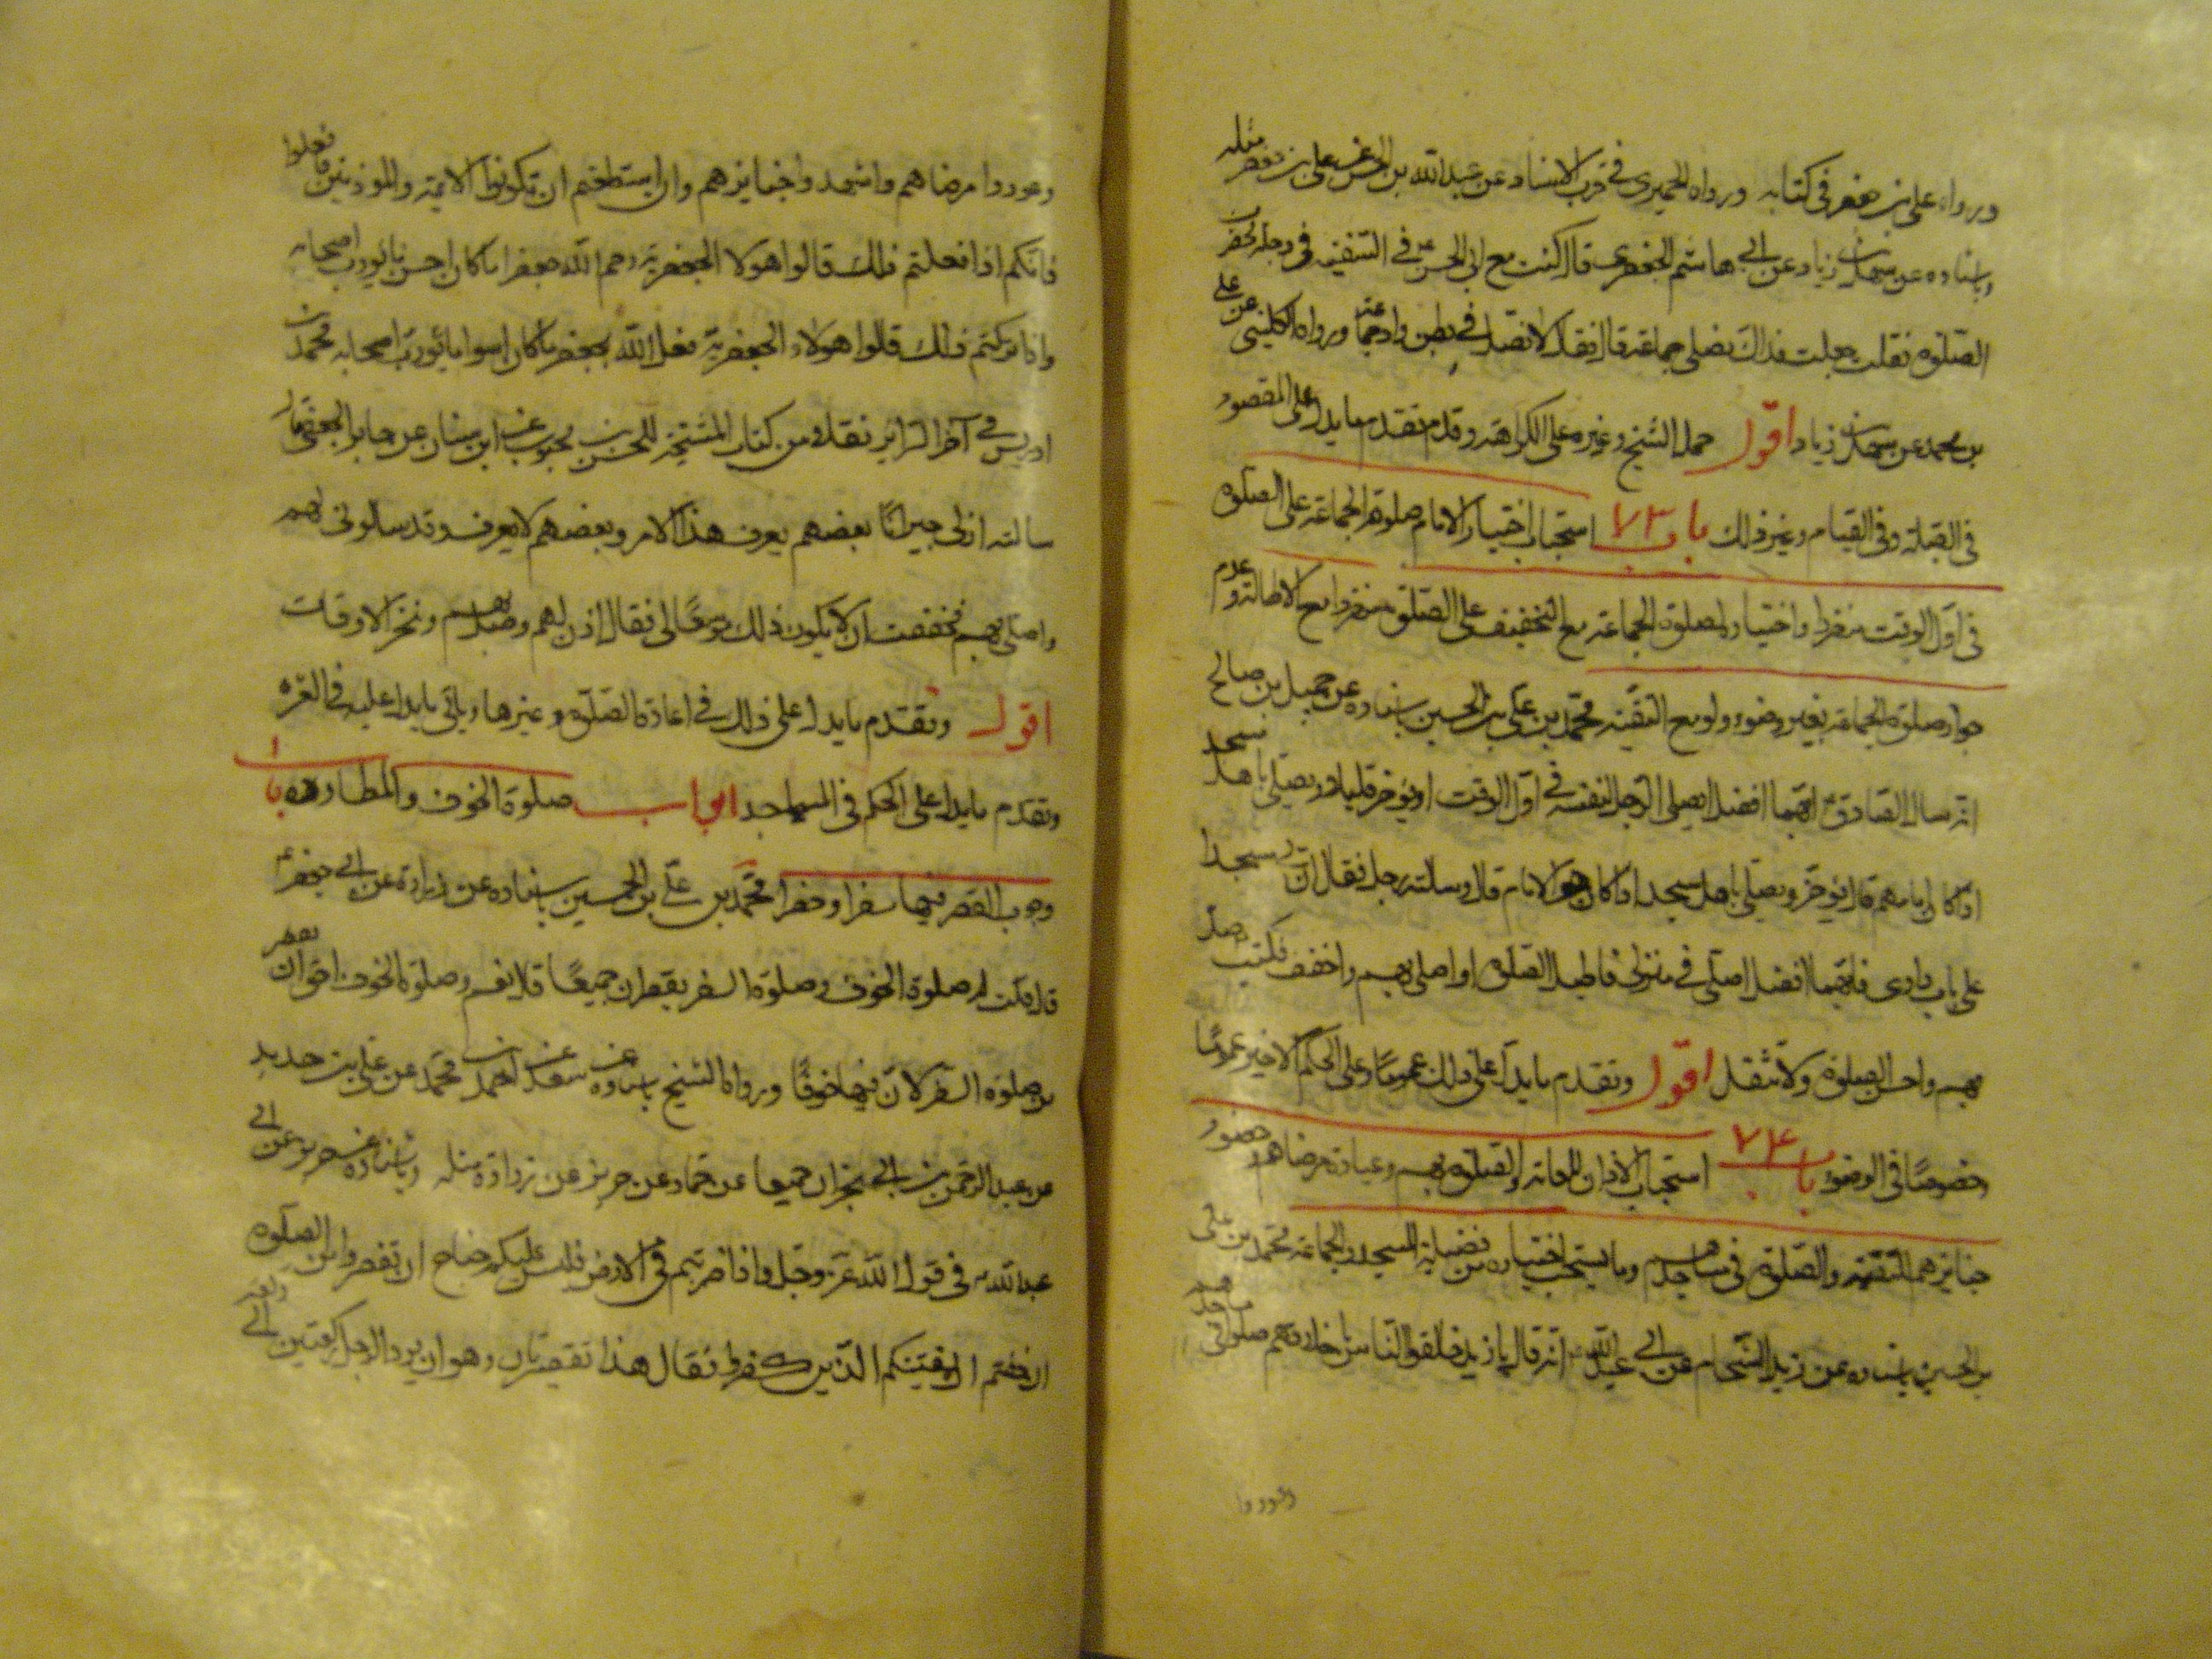 ورواه علي بن جعفر في كتابه ورواه الحميري في قرب الاسناد عن عبدالله بن الحسن عن علي بن جعفر مثله
وباسناده عن سهل بن زياد عن ابي هاشم الجعفري قال كنت مع ابي الحسن ع في السفينة في دجلة فحضرت
الصلوة فقلت جعلت فداك نصلي جماعة قال فقال لا تصل في بطن واد جماعة ورواه الكليني عن علي
بن محمد عن سهل بن زياد اقول حمله الشيخ وغيره على الكراهة وقد تقدم ما يدل على المقصود
في القبلة وفي القيام وغير ذلك باب ٧٣ استحباب اختيار الامام صلوة الجماعة على الصلوة
في اول الوقت منفردا واختيار لصلوة الجماعة مع التخفيف على الصلوة منفردا مع الاطالة وعدم
جواز صلوة الجماعة بغير وضوء ولو مع التقية محمد بن علي بن الحسين باسناده عن جميل بن صالح
انه سال الصادق ع ايهما افضل ايصلي الرجل لنفسه في اول الوقت او يؤخر قليلا ويصلي باهل مسجده
اذا كان امامهم قال يؤخر ويصلي باهل مسجده اذا كان هو الامام قال وسئله رجل فقال ان لي مسجدا
على باب داري فايهما افضل اصلي في منزلي فاطيل الصلوة او اصلي بهم واخفف فكتب صل
بهم واحسن الصلوة ولا تثقل اقول وتقدم ما يدل على ذلك عموما وعلى الحكم الاخير عموما
وخصوصا في الوضوء باب ٧٤ استحباب الاذان للعامة والصلوة بهم وعيادة مرضاهم وحضور
جنايزهم للتقية والصلوة في مساجدهم وما يستحب اختياره من فضيلة المسجد والجماعة محمد بن علي
بن الحسين باسناده عن زيد الشحام عن ابي عبدالله ع انه قال يا زيد خالقوا الناس باخلاقهم صلوا في مساجدهم
وعودوا
وعودوا مرضاهم واشهدوا جنايزهم وان استطعتم ان تكونوا الائمة والموذنين فافعلوا
فانكم اذا فعلتم ذلك قالوا هولا الجعفرية رحم الله جعفرا ما كان احسن ما يؤدب اصحابه
واذا تركتم ذلك قالوا هولاء الجعفرية فعل الله بجعفر ما كان اسوا ما يؤدب اصحابه محمد بن
ادريس في آخر السرائر نقلا من كتاب المشيخة للحسن بن محبوب عن ابن سنان عن جابر الجعفي قال
سالته ان لي جيرانا بعضهم يعرف هذا الامر وبعضهم لا يعرف وقد سالوني اؤذن لهم
واصلي بهم فخفت ان لا يكون ذلك موسعا لي فقال اذن لهم وصل بهم وتحر الاوقات
اقول وتقدم ما يدل على ذلك في اعادة الصلوة وغيرها وياتي ما يدل عليه في العشرة
وتقدم ما يدل على الحكم في المساجد ابواب صلوة الخوف والمطاردة باب ١
وجوب القصر فيهما سفرا وحضرا محمد بن علي بن الحسين باسناده عن زرارة عن ابي جعفر ع
قال قلت له صلوة الخوف وصلوة السفر يقصران جميعا قال نعم وصلوة الخوف احق ان تقصر
من صلوة السفر لان فيها خوفا ورواه الشيخ باسناده عن سعد عن احمد بن محمد عن علي بن حديد
عن عبد الرحمن بن ابي نجران جميعا عن حماد عن حريز عن زرارة مثله وباسناده عن حريز عن ابي
عبدالله ع في قول الله عز وجل واذا ضربتم في الارض فليس عليكم جناح ان تقصروا من الصلوة
ان خفتم ان يفتنكم الذين كفروا فقال هذا تقصير ثان وهو ان يرد الرجل ركعتين الى ركعة